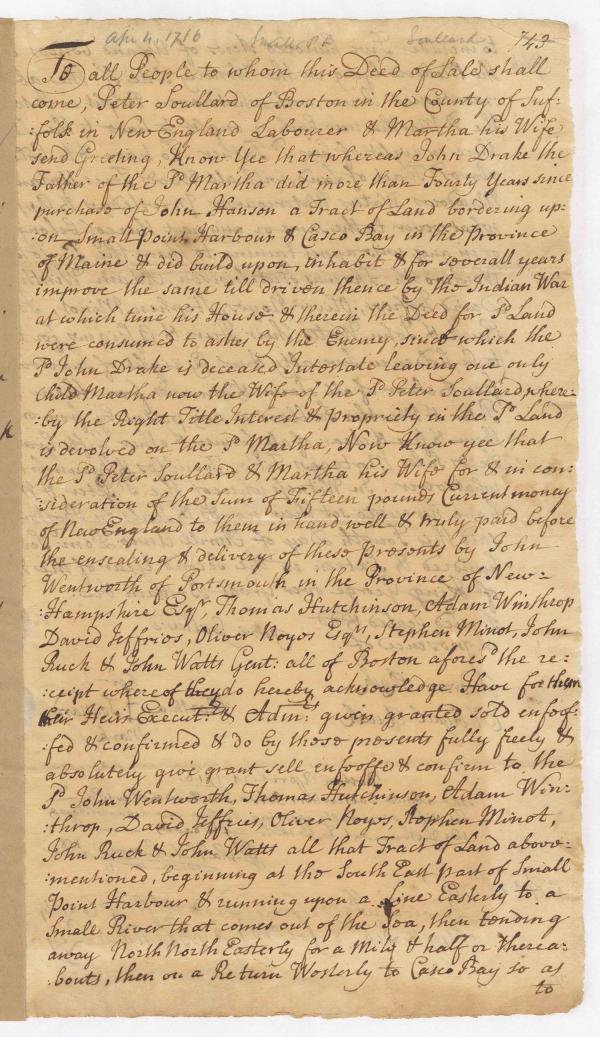 Apr 4, 1716 Small Pt Soullard 743
To all People to whom this Deed of Sale shall
come, Peter Soullard of Boston in the County of Suf-
:folk in New England Labourer & Martha his Wife
send Greeting, Know Yee that whereas John Drake the
Father of the Sd Martha did more than Fourty Years since
purchase of John Hanson a Tract of Land bordering up:
:on Small Point Harbour & Casco Bay in the Province
of Maine & did build upon, inhabit & for severall years
improve the same till driven thence by the Indian War
at which time his House & therein the Deed for Sd Land
were consumed to ashes by the Enemy, since which the
Sd John Drake is deceased Intestate leaving one only
Child Martha now the Wife of the Sd Peter Soullard, where-
:by the Right Title Interest & Propriety in the Sd Land
is devolved on the Sd Martha, Now Know yee that
the Sd Peter Soullard & Martha his Wife for & in con:
:sideration of the Sum of Fifteen pounds Current money
of New England to them in hand well & truly paid before
the ensealing & delivery of these Presents by John
Wentworth of Portsmouth in the Province of New=
:Hampshire Esqr, Thomas Hutchinson, Adam Winthrop
David Jeffries, Oliver Noyes Esqrs, Stephen Minot, John
Ruck & John Watts Gent: all of Boston aforesd the re:
:ceipt whereof they do hereby acknowledge Have for them
their Heirs Execut:rs & Adm:rs given granted sold enfeof:
:fed & confirmed & do by these presents fully freely &
absolutely give grant sell enfeoffe & confirm to the
Sd John Wentworth, Thomas Hutchinson, Adam Win:
:throp, David Jeffries, Oliver Noyes, Stephen Minot,
John Ruck & John Watts all that Tract of Land above=
:mentioned, beginning at the South East part of Small
Point Harbour & running upon a Line Easterly to a
Small River that comes out of the Sea, then tending
away North North Easterly for a Mile & half or therea:
:bouts, then on a Return Westerly to Casco Bay so as
to